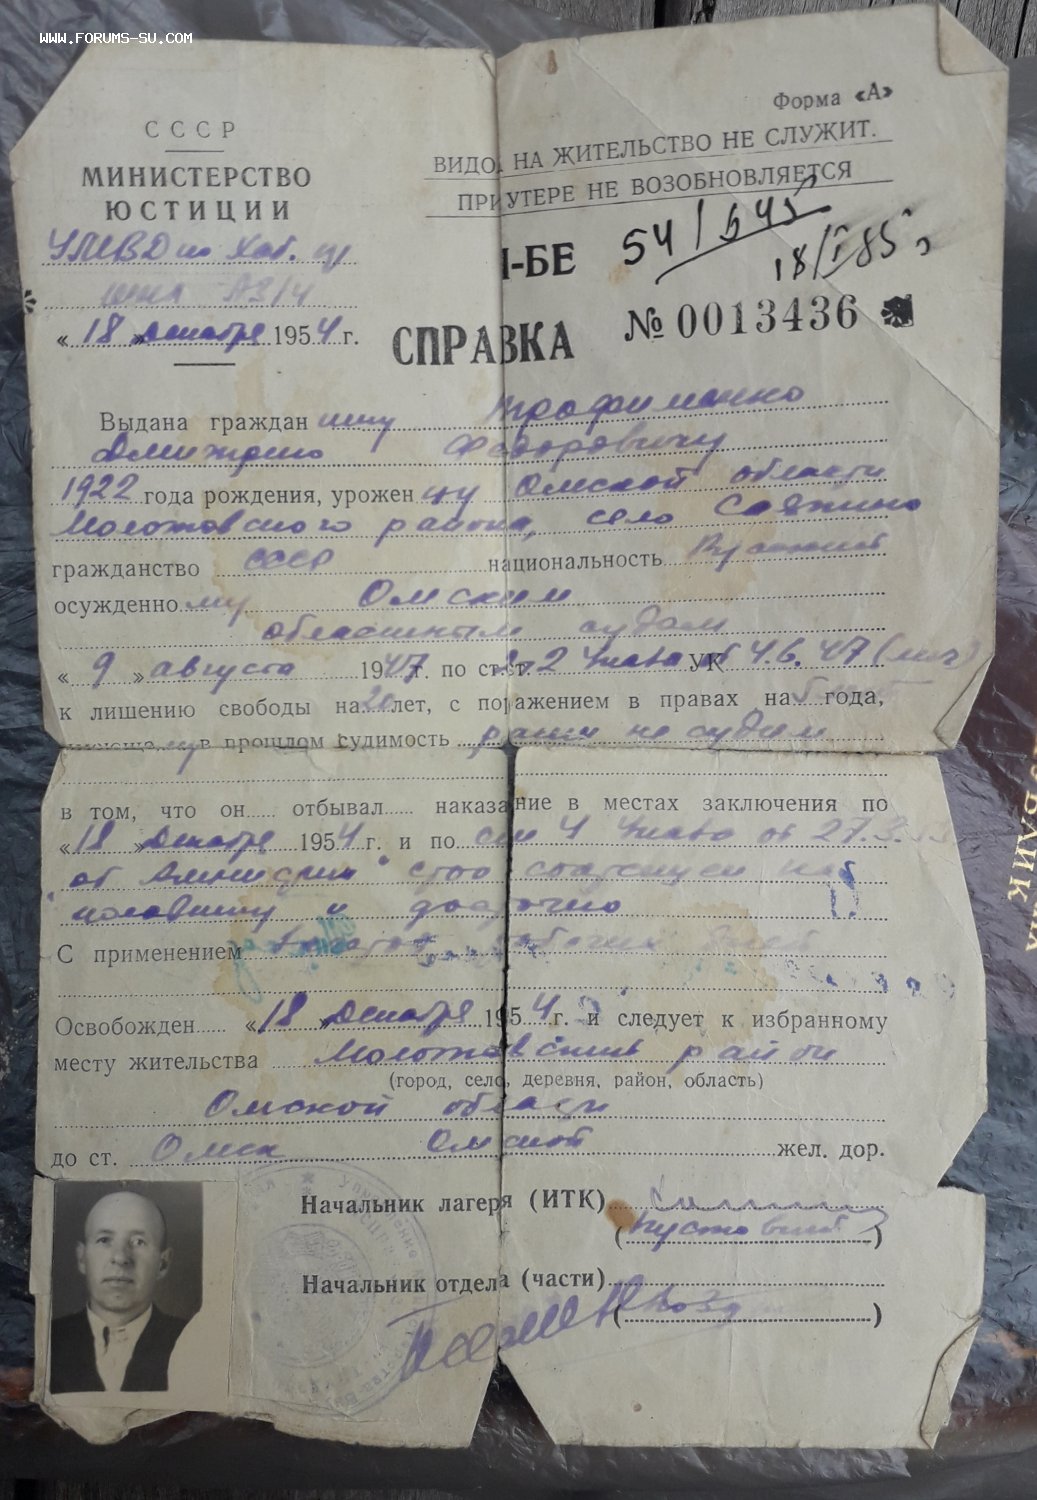 WWW.FORUMS-SU.COM
Форма «А»
СССР
МИНИСТЕРСТВО
ЮСТИЦИИ
УМВД по Хаб. кр
ВИДО НА ЖИТЕЛЬСТВО НЕ СЛУЖИТ.
ПРИ УТЕРЕ НЕ ВОЗОБНОВЛЯЕТСЯ
54/645
18/I 85
-БЕ
№ 0013436
«18» декабря 1954 г.
СПРАВКА
Выдана гражданину Трофименко
Дмитрию Федоровичу
1922 года рождения, уроженцу Омской области
Молотовского района, село
гражданство СССР национальность Русский
осужденному Омским
областным судом
«9» августа 1947 г. по ст.ст. 2 Указа УК от 4.6.47
к лишению свободы на 20 лет, с поражением в правах на 5 года,
в прошлом судимость ранее не судим
в том, что он отбывал наказание в местах заключения по
«18» декабря 1954 г. и по ст 4 Указа от 27.3.
"об Амнистии"
половину и досрочно
С применением рабочих дней
Освобожден «18» декабря 1954 г. и следует к избранному
месту жительства Молотовский район
(город, село, деревня, район, область)
Омской области
до ст. Омск Омской жел. дор.
Начальник лагеря (ИТК)
(Пустовит)
Начальник отдела (части)
( )